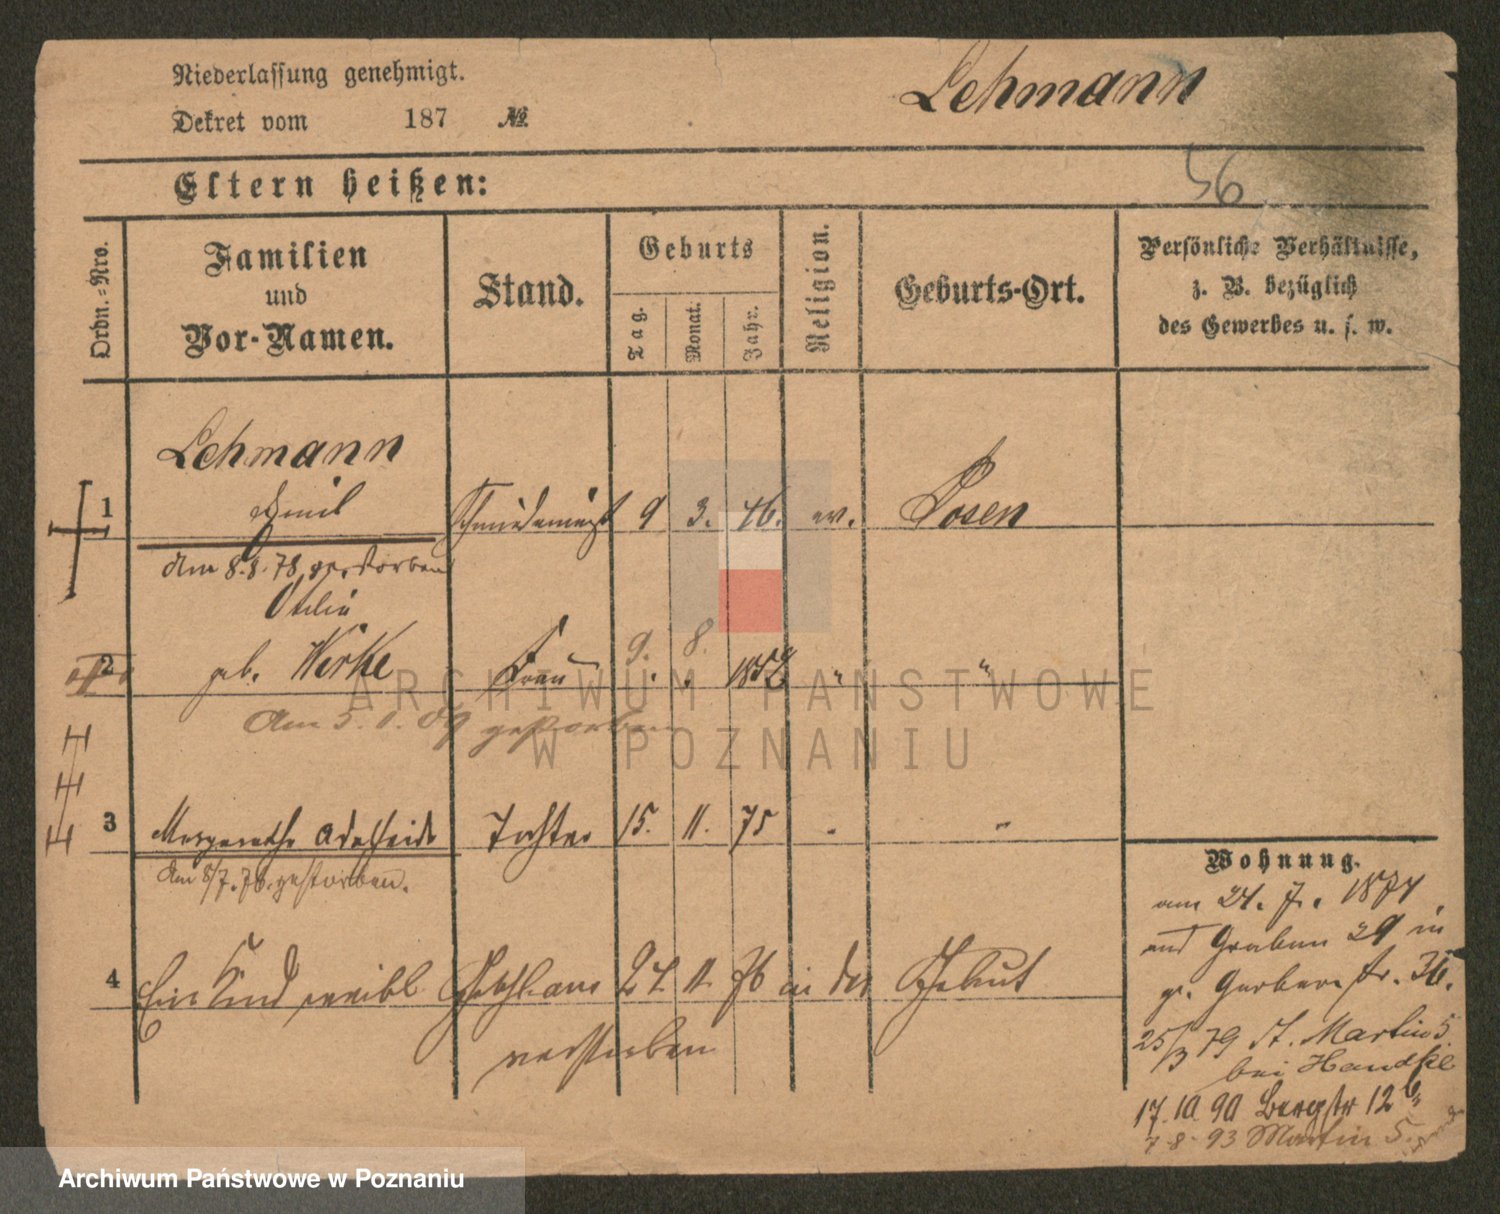 Niederlassung genehmigt.
Lehmann
Dekret vom 187 №
56
Eltern heißen:
Ordn.-Nro.
Familien
und
Vor-Namen.
Stand.
Geburts
Tag.
Monat.
Jahr.
Religion.
Geburts-Ort.
Persönliche Verhältnisse,
z. B. bezüglich
des Gewerbes u. s. w.
Lehmann
1 Emil 9 3. 46. ev. Posen
am 8.8.78 verstorben
Otilie
2 geb. Wirke Frau 9. 8. 1852 " "
Am 5.1.89 gestorben
3 Margarethe Adelheide Tochter 15. 11. 75 " "
Am 8/7.76. gestorben.
4 Ein Kind weibl 27. 11. 76 in der Geburt
verstorben
Wohnung.
am 24. 7. 1874
Graben 29 in
gr. Gerber str. 36.
25/3 79 St. Martin 5.
bei Handke
17.10 90 Bergstr 12b
7.8.93 Martin 5.
ARCHIWUM PAŃSTWOWE
W POZNANIU
Archiwum Państwowe w Poznaniu